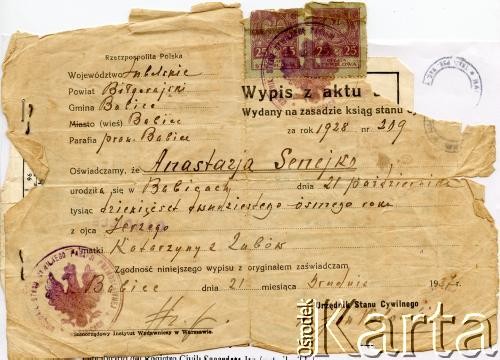 Rzeczpospolita Polska
Województwo Lubelskie
Powiat Biłgorajski
Gmina Babice
Miasto (wieś) Babice
Parafia praw. Babice
25 25
Wypis z aktu
Wydany na zasadzie ksiąg stanu
za rok 1928 nr. 209
Oświadczamy, że Anastazja Senejko
urodziła się w Babicach dnia 21 października
tysiąc dziewięćset dwudziestego ósmego roku
z ojca Jerzego
matki Katarzyny z Zubów
Zgodność niniejszego wypisu z oryginałem zaświadczam
Babice dnia 21 miesiąca Grudnia 19
Urzędnik Stanu Cywilnego
Samorządowy Instytut Wydawniczy w Warszawie.
Ośrodek
Karta